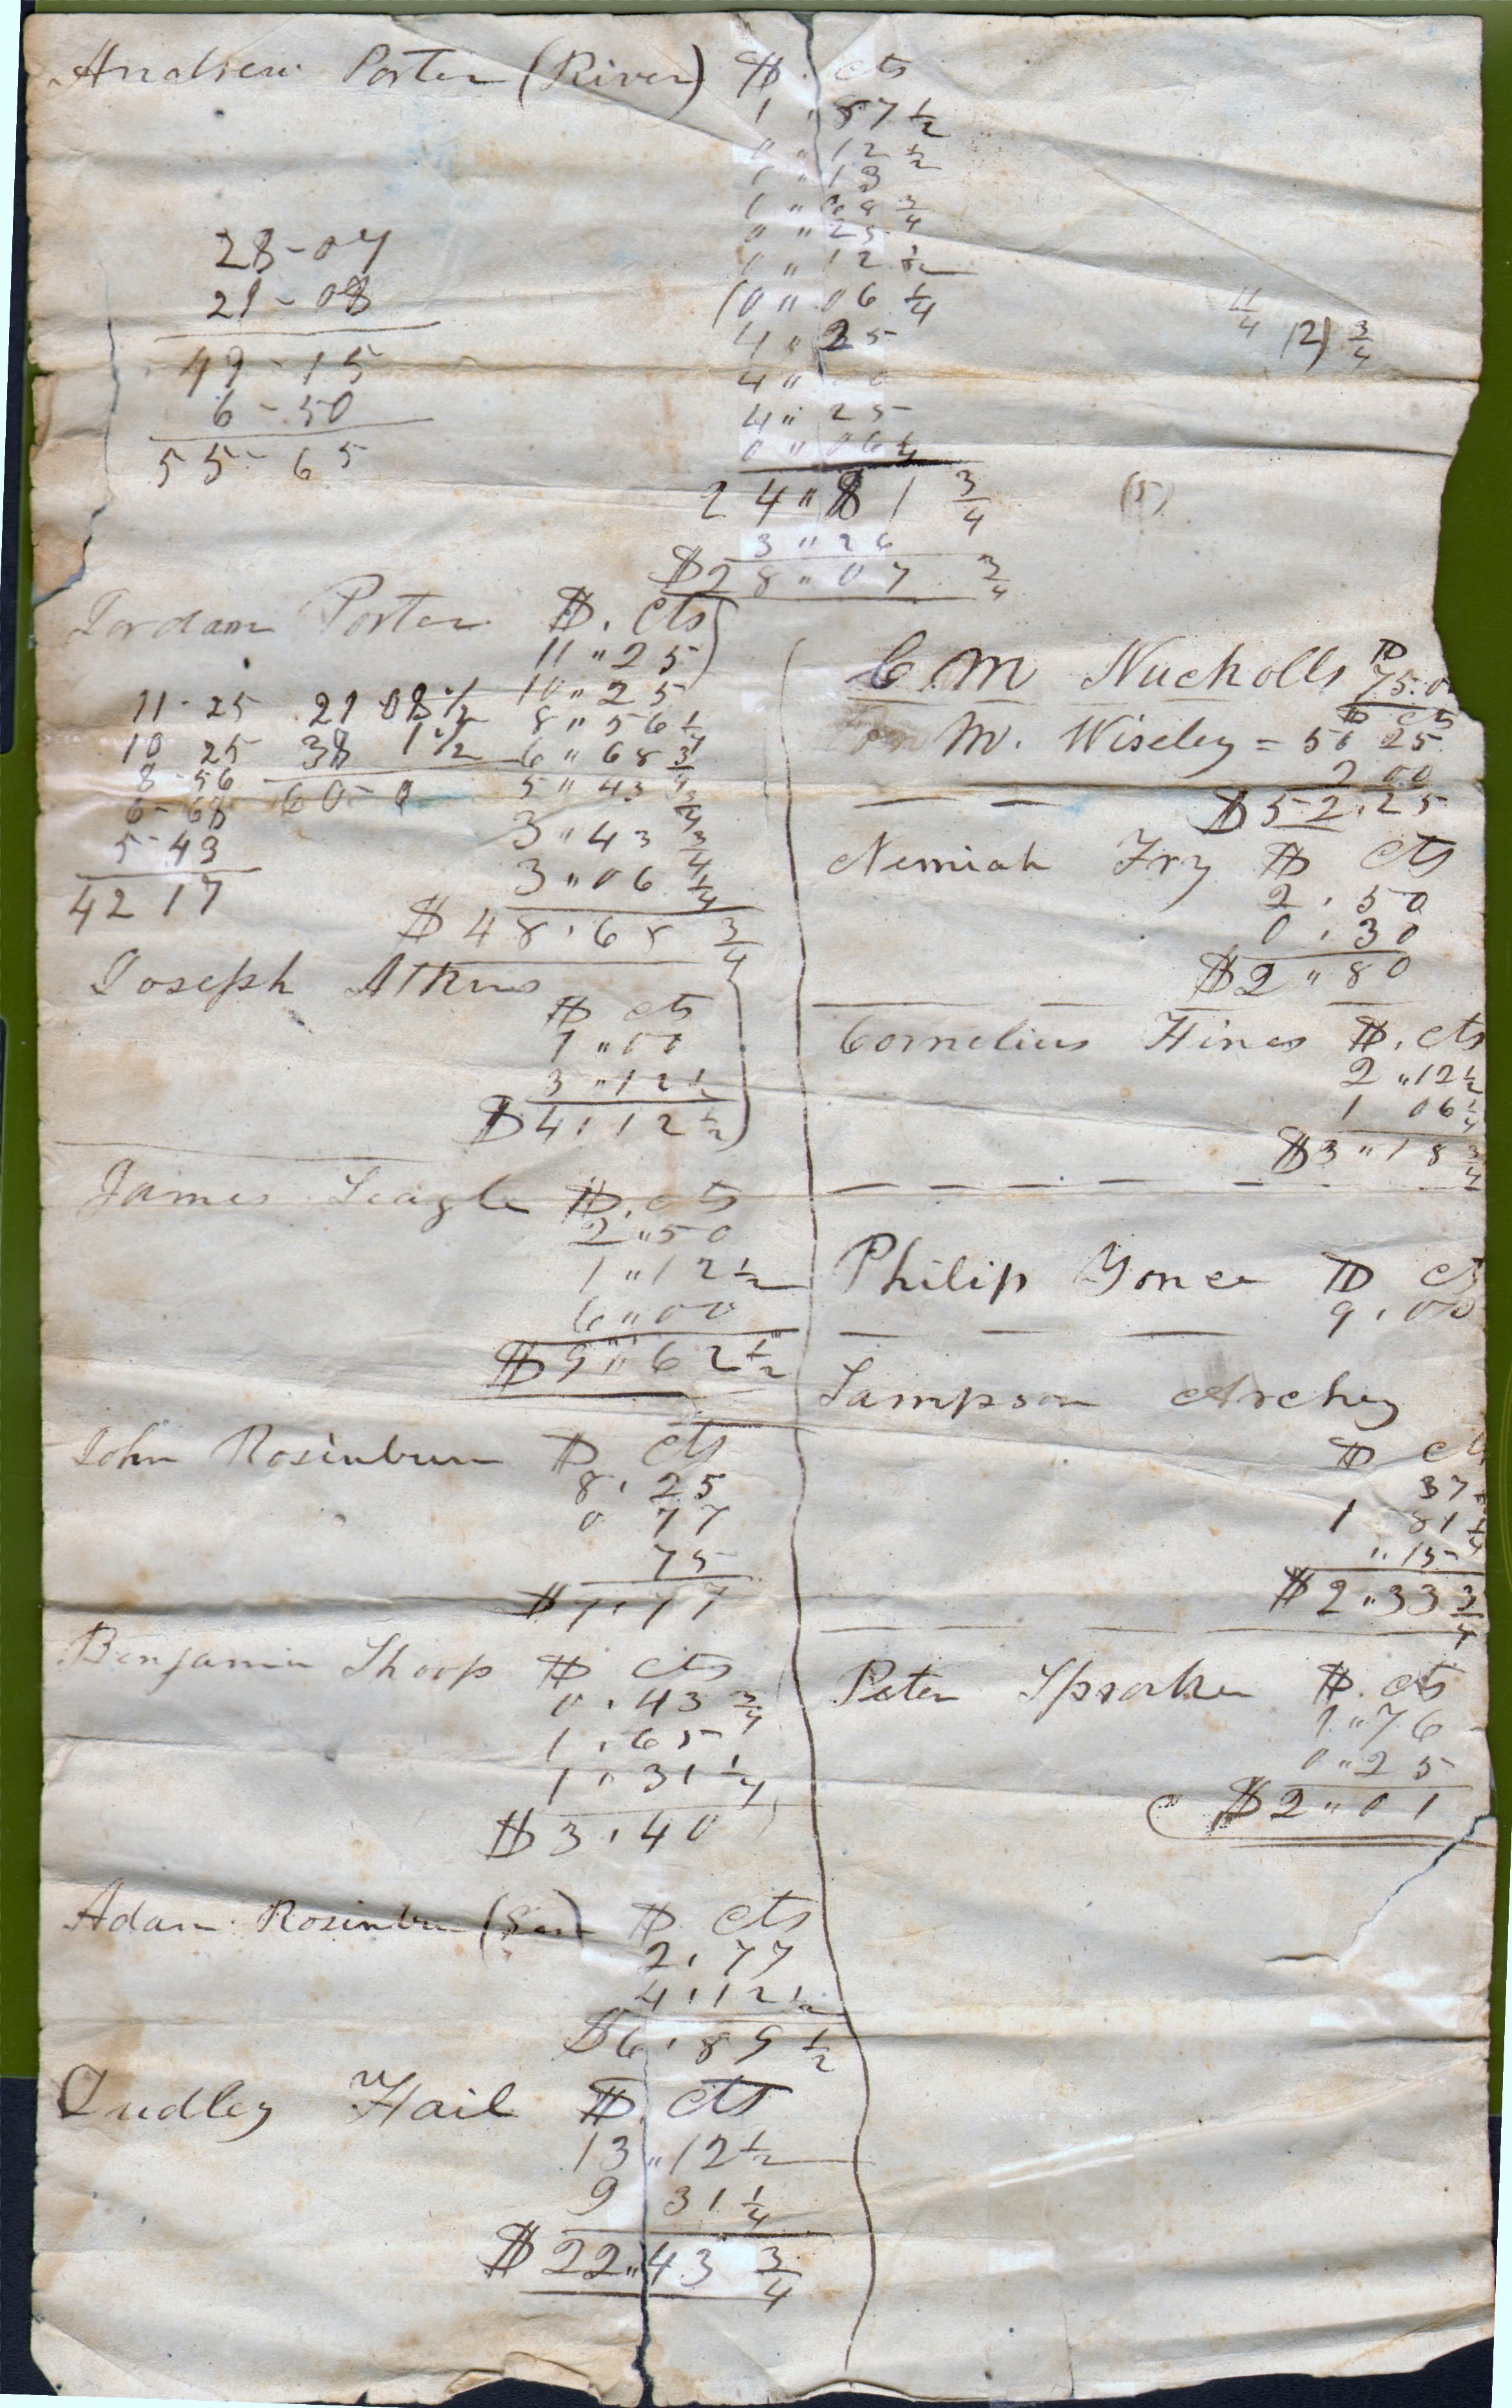 Andrew Porter (River) $. cts
1 " 87 1/2
0 " 12 1/2
0 " 13
1 " 68 3/4
0 " 25
0 " 12 1/2
10 " 06 1/4
4 " 25
4 " 00
4 " 25
0 " 06 1/4
24 " 81 3/4
3 " 26
$28 " 07 3/4
28-07
21-08
49-15
6-50
55-65
11/4 12 3/4
Jordam Porter $. cts
11 " 25
10 " 25
8 " 56 1/4
6 " 68 3/4
5 " 43 3/4
3 " 43 3/4
3 " 06 1/4
$48 . 68 3/4
11-25
10 25
8-56
6-68
5-43
42 17
21 08 1/2
38 1 1/2
60-0
Joseph Atkins
$ cts
1 " 00
3 " 12 1/2
$4 . 12 1/2
James Teagle $. cts
2 " 50
1 " 12 1/2
6 " 00
$9 " 62 1/2
John Rosinbum $ cts
8 . 25
0 77
75
$ 7 . 77
Benjamin Thorp $ cts
0 . 43 3/4
1 . 65
1 . 31 1/4
$3 . 40
Adam Rosinbu (Sen) $. cts
2 . 77
4 . 12 1/2
$6 . 89 1/2
Dudley Hail $. cts
13 " 12 1/2
9 31 1/4
$22 " 43 3/4
C. M Nucholls $ 75.0
$ cts
M. Wiseley = 50 25
2 00
$52.25
Nemiah Fry $ cts
2 . 50
0 . 30
$2 " 80
Cornelius Hines $. cts
2 " 12 1/2
1 06 1/4
$3 " 18 3/4
Philip Yonce $ cts
9 . 00
Sampson Archey
$ cts
37 1/2
1 81 1/4
" 15
$2 " 33 3/4
Peter Spraker $. cts
1 " 76
0 " 25
$2 " 01